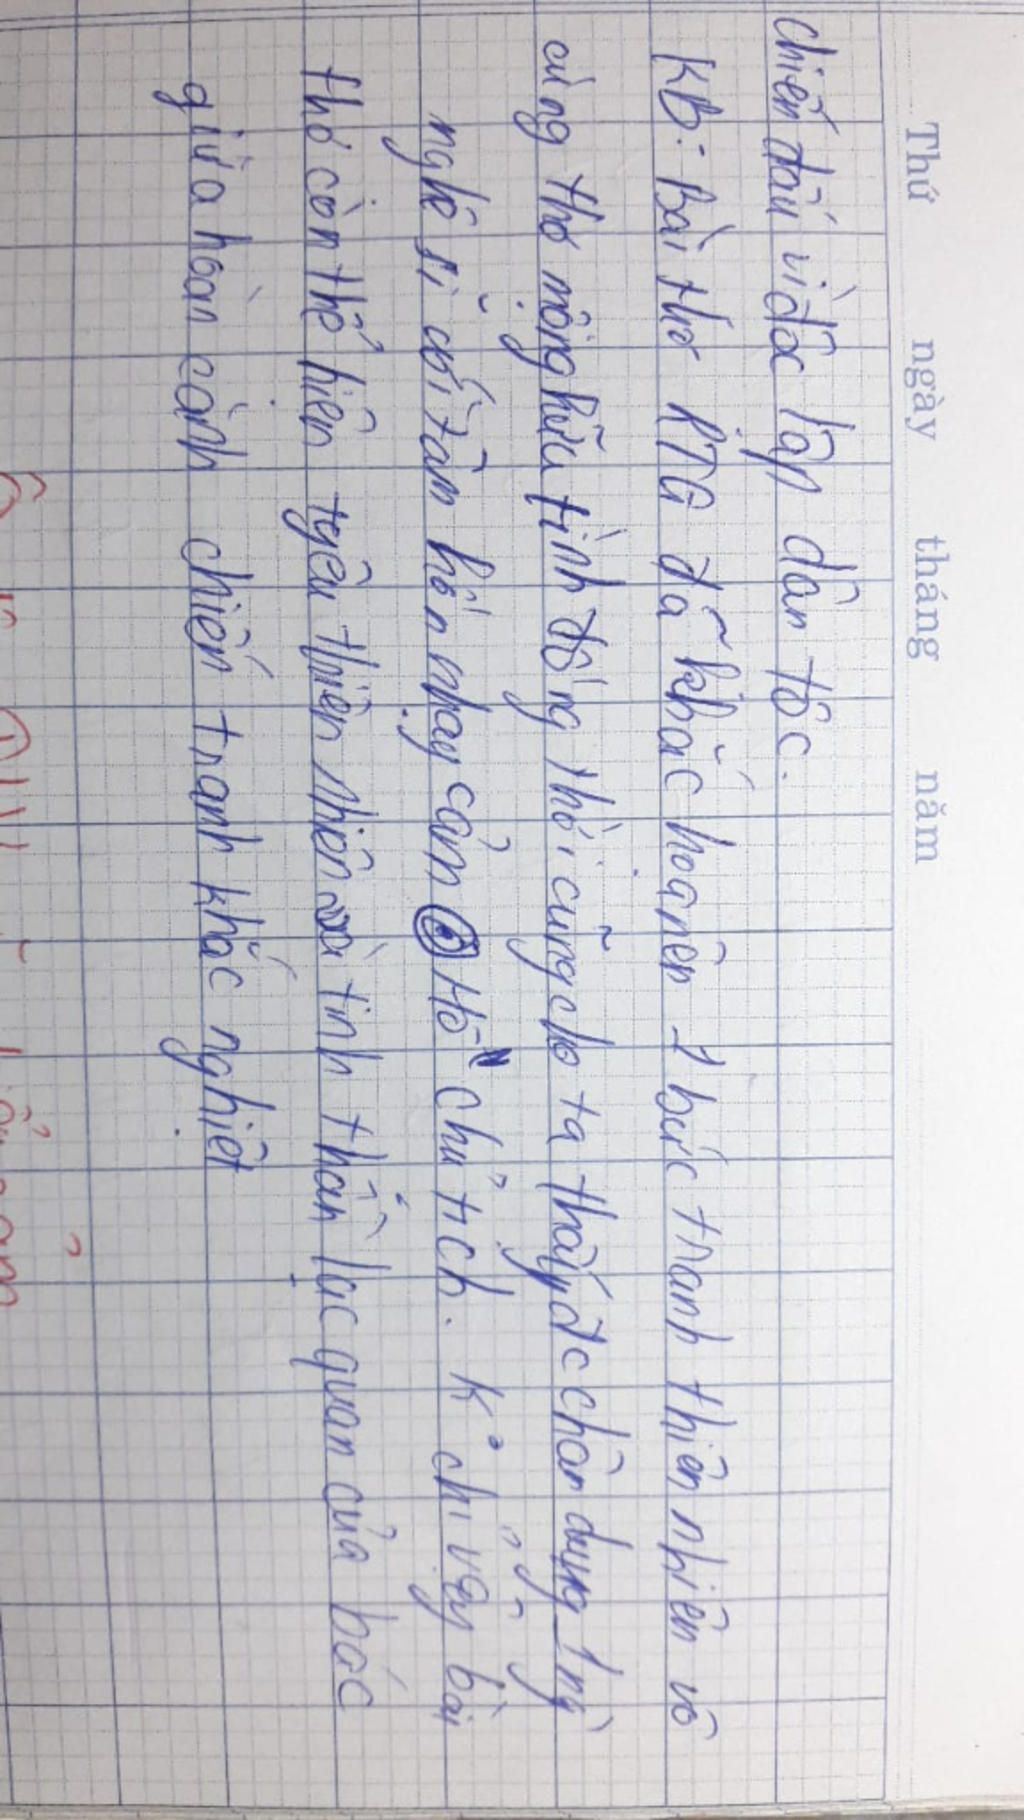 Thứ ngày tháng năm
chiến đấu vì độc lập dân tộc.
KB: Bài thơ RTG đã khắc hoạ nên 1 bức tranh thiên nhiên vô
cùng thơ mộng hữu tình đồng thời cũng cho ta thấy đc chân dung 1 ng
nghệ sĩ với tâm hồn nhạy cảm Hồ chủ tịch. Kº chỉ vậy bài
thơ còn thể hiện tyêu thiên nhiên và tinh thần lạc quan của bác
giữa hoàn cảnh chiến tranh khắc nghiệt